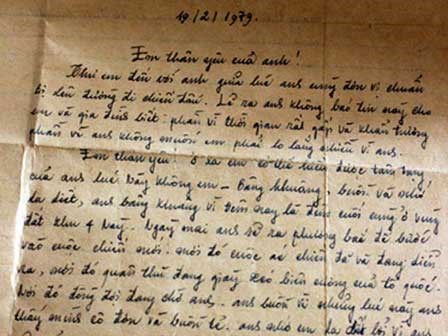 19/2/1979.
Em thân yêu của anh!
Thư em đến với anh giữa lúc anh cùng đơn vị chuẩn
bị lên đường đi chiến đấu. Lẽ ra anh không báo tin này cho
em và gia đình biết phần vì thời gian rất gấp và khẩn trương
phần vì anh không muốn em phải lo lắng nhiều vì anh.
Em thân yêu! ở xa em có thể hiểu được tâm trạng
của anh lúc này không em - Bâng khuâng, buồn và nhớ
da diết, anh bâng khuâng vì đêm nay là đêm cuối cùng ở vùng
đất khu 4 này. Ngày mai anh sẽ ra phương bắc để bước
vào cuộc chiến mới. nơi đó cuộc chiến đã và đang diễn
ra, nơi đó quân thù đang giày xéo biên cương của tổ quốc.
Nơi đó đồng đội đang chờ anh. anh buồn vì những lúc này anh
thấy mình cô đơn và buồn tẻ. anh nhớ em da diết bởi vì anh